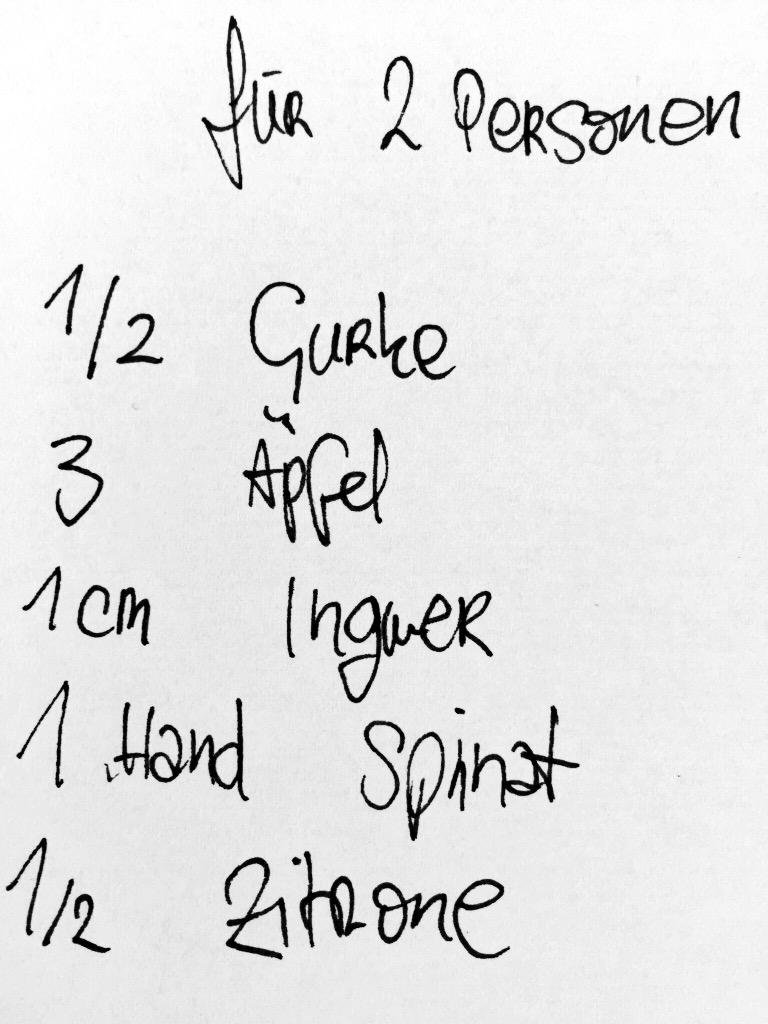 für 2 Personen
1/2 Gurke
3 Äpfel
1 cm Ingwer
1 Hand Spinat
1/2 Zitrone